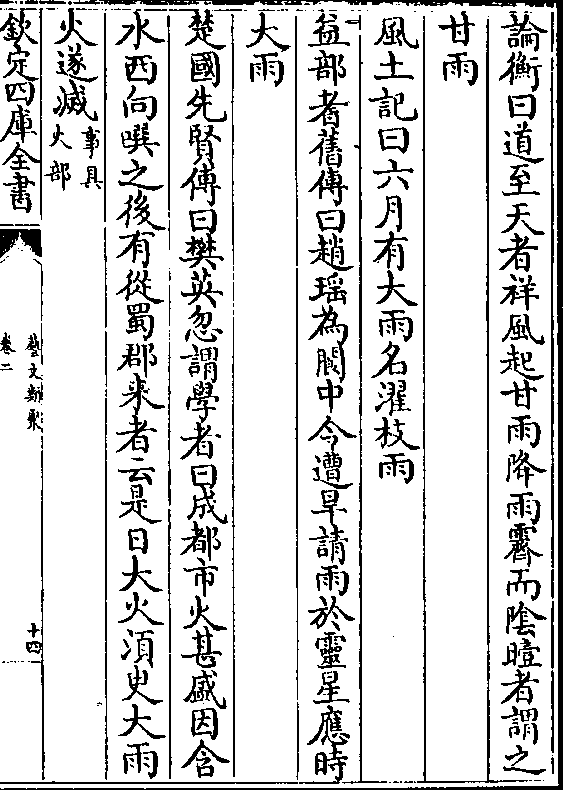 論衡曰道至天者祥風起甘雨降雨霽而陰曀者謂之
甘雨
風土記曰六月有大雨名濯枝雨
益部耆舊傳曰趙瑶為閬中令遭旱請雨於靈星應時
大雨
楚國先賢傳曰樊英忽謂學者曰成都市火甚盛因含
水西向噀之後有從蜀郡来者云是日大火須臾大雨
火遂滅事具火部
欽定四庫全書
藝文類聚
卷二
十四